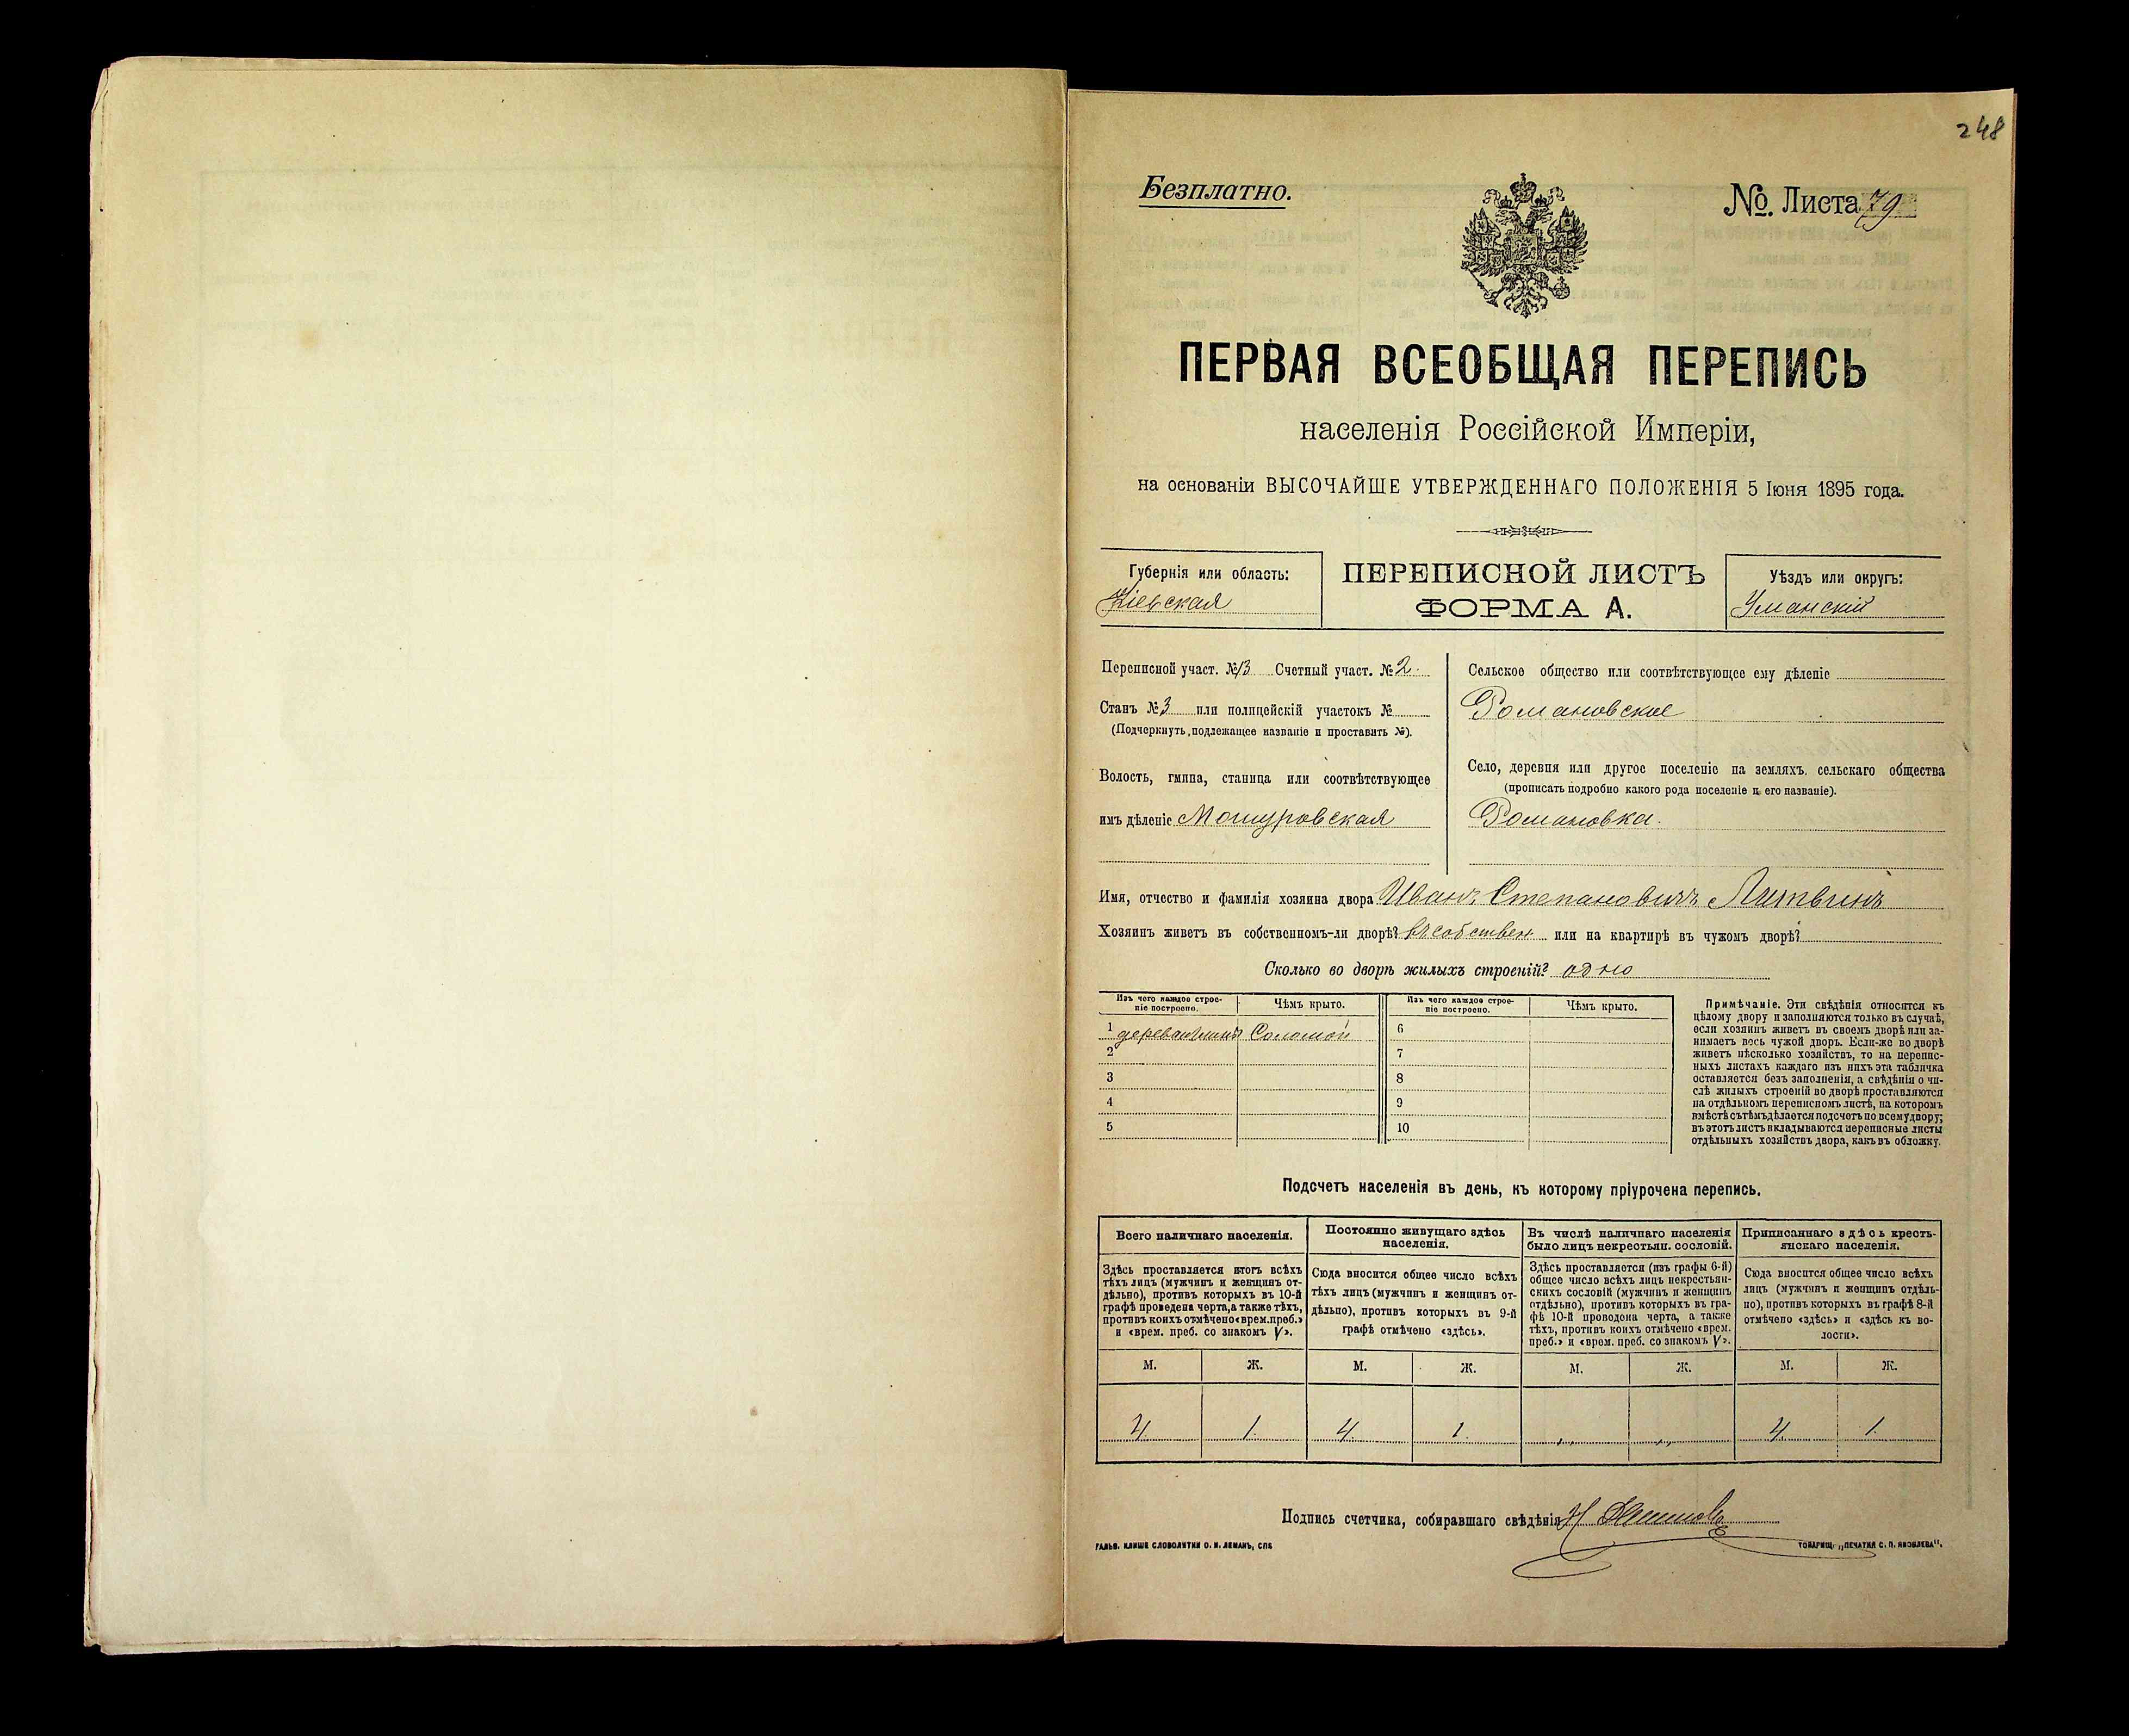 248
Безплатно.
№. Листа 79
ПЕРВАЯ ВСЕОБЩАЯ ПЕРЕПИСЬ
населенія Россійской Имперіи,
на основаніи ВЫСОЧАЙШЕ УТВЕРЖДЕННАГО ПОЛОЖЕНІЯ 5 Іюня 1895 года.
Губернія или область:
Кіевская
ПЕРЕПИСНОЙ ЛИСТЪ
ФОРМА А.
Уѣздъ или округъ:
Уманскій
Переписной участ. № 13 Счетный участ. № 2.
Станъ № 3 или полицейскій участокъ №
(Подчеркнуть подлежащее названіе и проставить №).
Волость, гмина, станица или соотвѣтствующее
имъ дѣленіе Мошуровская
Сельское общество или соотвѣтствующее ему дѣленіе
Романовское
Село, деревня или другое поселеніе на земляхъ сельскаго общества
(прописать подробно какого рода поселеніе и его названіе).
Романовка.
Имя, отчество и фамилія хозяина двора Иванъ Степановичъ Литвинъ
Хозяинъ живетъ въ собственномъ-ли дворѣ? въ собствен или на квартирѣ въ чужомъ дворѣ?
Сколько во дворѣ жилыхъ строеній? одно
Изъ чего каждое строе-
ніе построено.
Чѣмъ крыто.
Изъ чего каждое строе-
ніе построено.
Чѣмъ крыто.
1 Соломой 6
2 7
3 8
4 9
5 10
Примѣчаніе. Эти свѣдѣнія относятся къ
цѣлому двору и заполняются только въ случаѣ,
если хозяинъ живетъ въ своемъ дворѣ или за-
нимаетъ весь чужой дворъ. Если-же во дворѣ
живетъ нѣсколько хозяйствъ, то на перепис-
ныхъ листахъ каждаго изъ нихъ эта табличка
оставляется безъ заполненія, а свѣдѣнія о чи-
слѣ жилыхъ строеній во дворѣ проставляются
на отдѣльномъ переписномъ листѣ, на которомъ
вмѣстѣ съ тѣмъ дѣлается подсчетъ по всему двору;
въ этотъ листъ вкладываются переписные листы
отдѣльныхъ хозяйствъ двора, какъ въ обложку.
Подсчетъ населенія въ день, къ которому пріурочена перепись.
Всего наличнаго населенія.
Здѣсь проставляется итогъ всѣхъ
тѣхъ лицъ (мужчинъ и женщинъ от-
дѣльно), противъ которыхъ въ 10-й
графѣ проведена черта, а также тѣхъ,
противъ коихъ отмѣчено «врем. преб.»
и «врем. преб. со знакомъ V».
Постоянно живущаго здѣсь
населенія.
Сюда вносится общее число всѣхъ
тѣхъ лицъ (мужчинъ и женщинъ от-
дѣльно), противъ которыхъ въ 9-й
графѣ отмѣчено «здѣсь».
Въ числѣ наличнаго населенія
было лицъ некрестьян. сословій.
Здѣсь проставляется (изъ графы 6-й)
общее число всѣхъ лицъ некрестьян-
скихъ сословій (мужчинъ и женщинъ
отдѣльно), противъ которыхъ въ гра-
фѣ 10-й проведена черта, а также
тѣхъ, противъ коихъ отмѣчено «врем.
преб.» и «врем. преб. со знакомъ V».
Приписаннаго здѣсь кресть-
янскаго населенія.
Сюда вносится общее число всѣхъ
лицъ (мужчинъ и женщинъ отдѣль-
но), противъ которыхъ въ графѣ 8-й
отмѣчено «здѣсь» и «здѣсь къ во-
лости».
М. Ж. М. Ж. М. Ж. М. Ж.
4. 1. 4. 1. „ „ 4. 1.
Подпись счетчика, собиравшаго свѣдѣнія
ГАЛЬВ. КЛИШЕ СЛОВОЛИТНИ О. И. ЛЕМАНЪ, СПБ
ТОВАРИЩ. „ПЕЧАТНЯ С. П. ЯКОВЛЕВА".